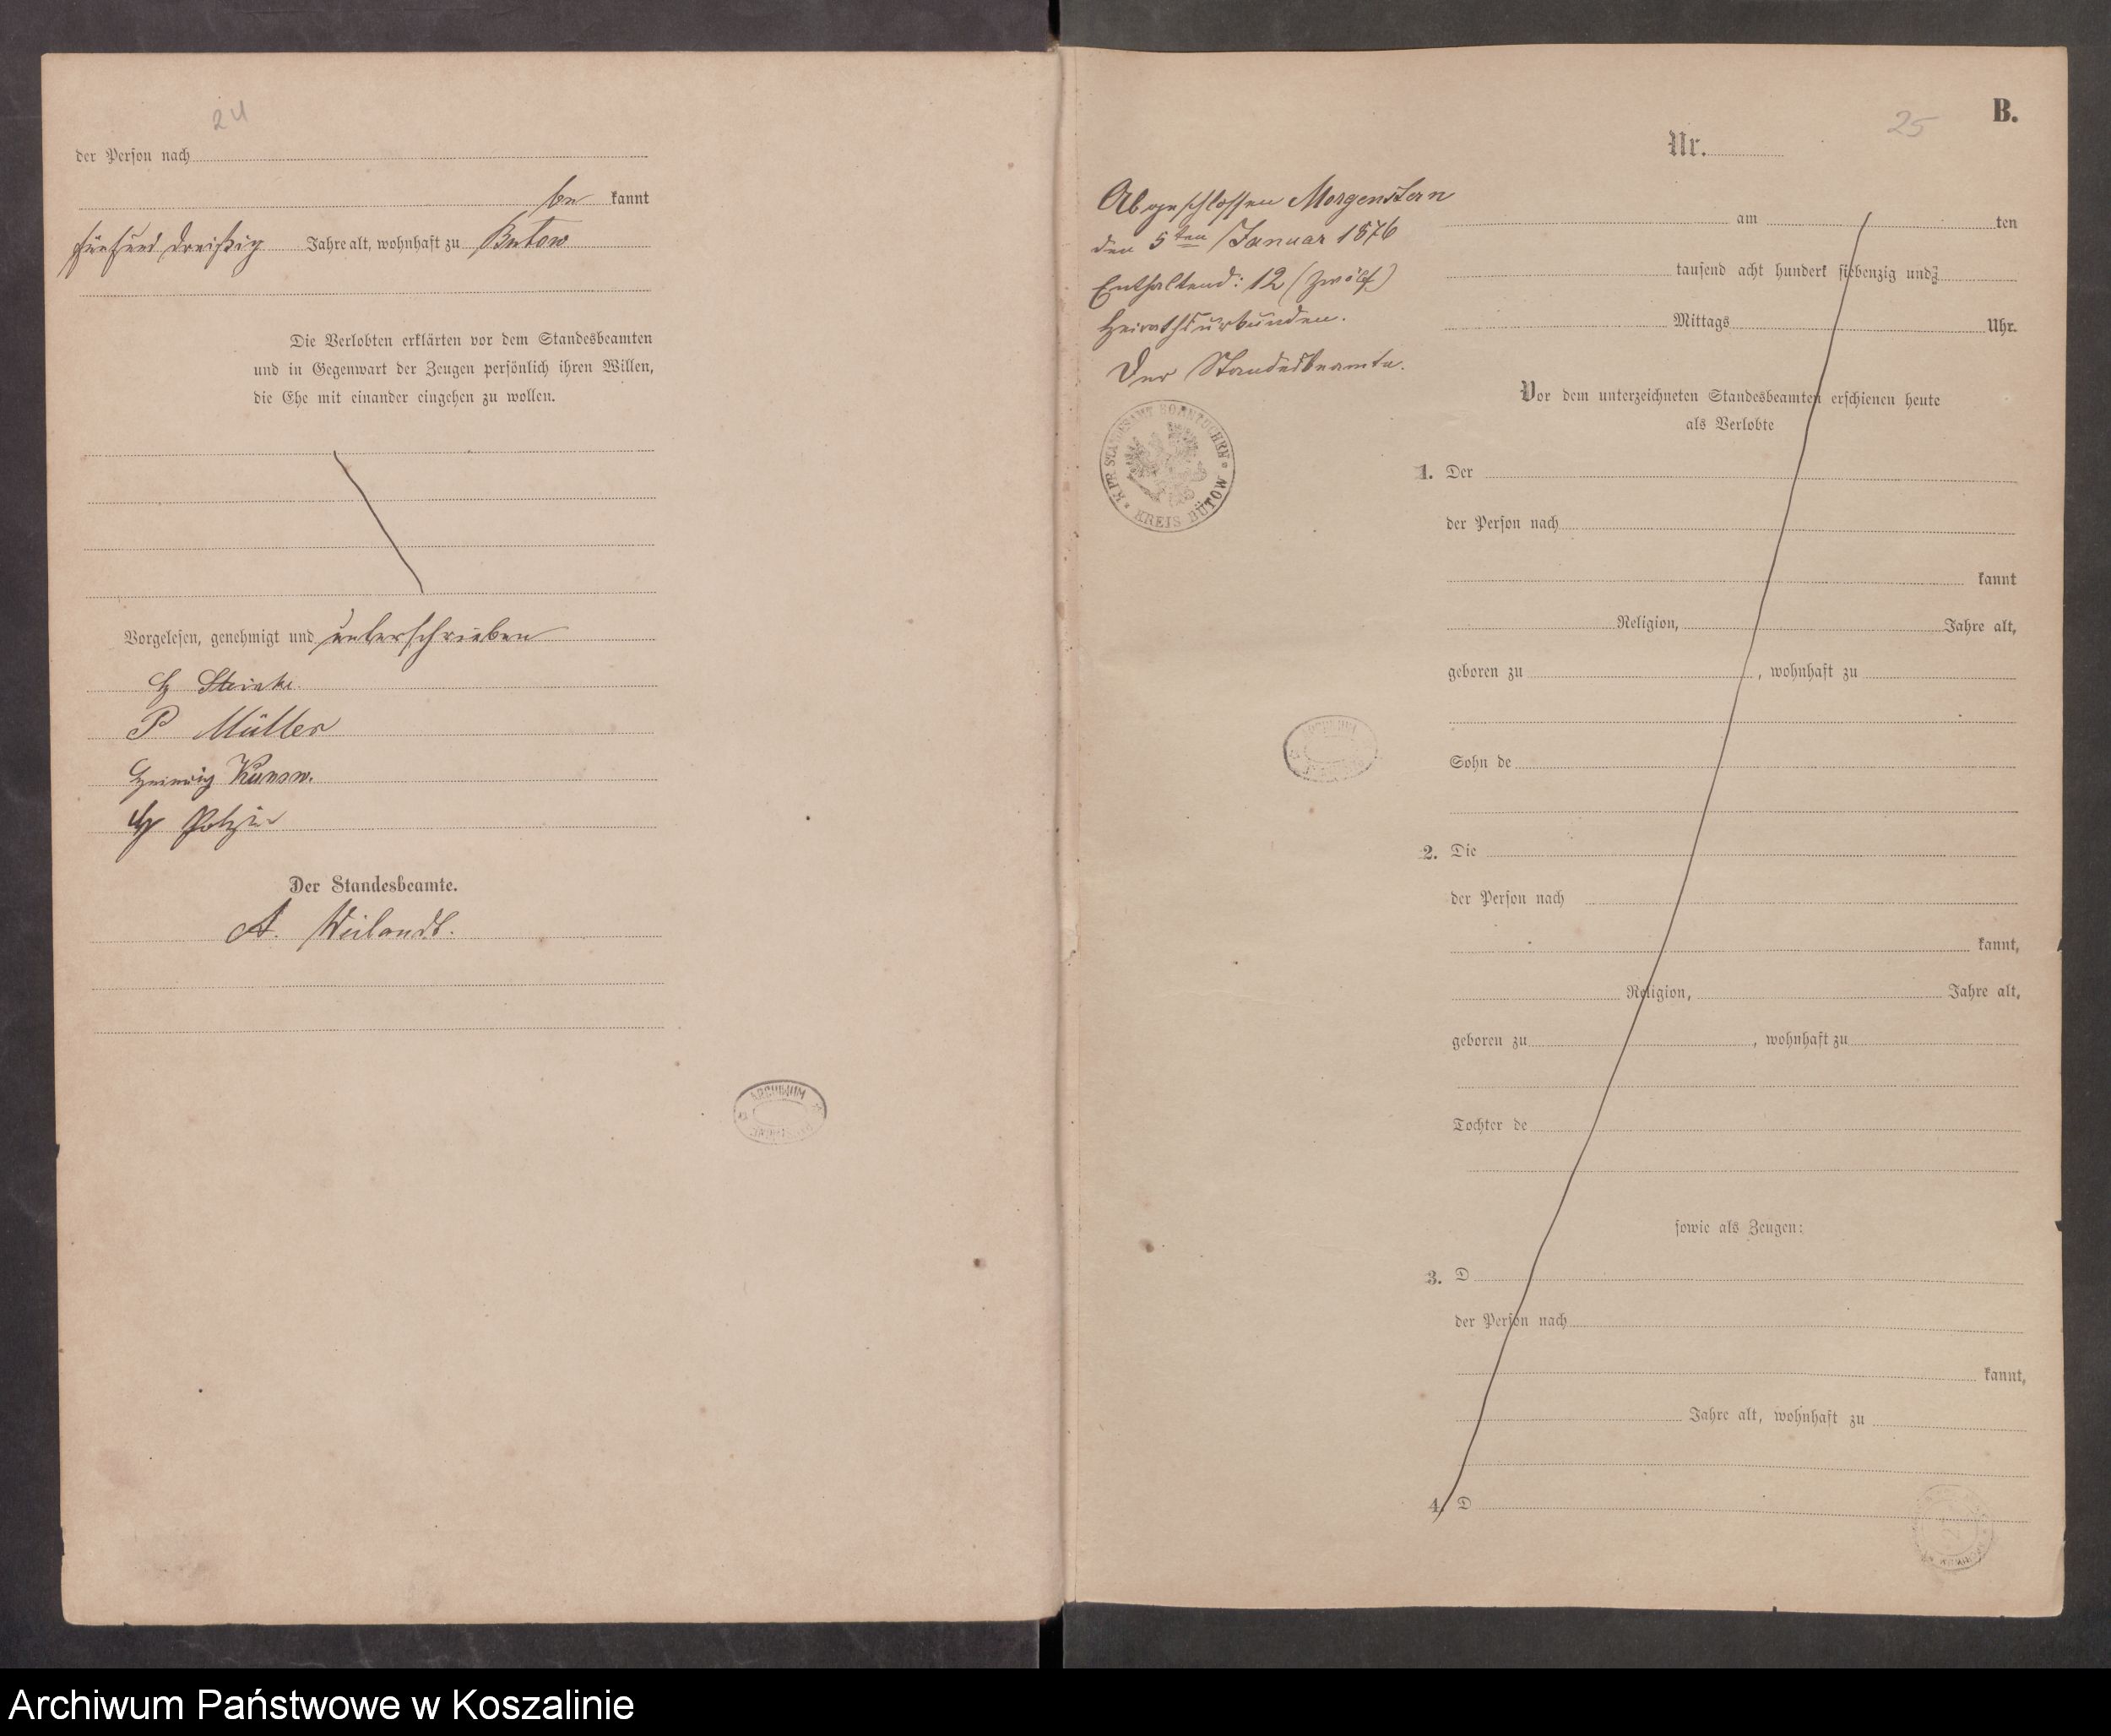 24
der Person nach
be kannt
fünfund dreißig Jahre alt, wohnhaft zu Butow
Die Verlobten erklärten vor dem Standesbeamten
und in Gegenwart der Zeugen persönlich ihren Willen,
die Ehe mit einander eingehen zu wollen.
Vorgelesen, genehmigt und unterschrieben
H Steinke
P Müller
Kunow.
H Potzin
Der Standesbeamte.
A. Weilandt.
ARCHIWUM
B.
25
Nr.
Abgeschlossen Morgenstern
den 5ten Januar 1876
Enthaltend: 12 (zwölf)
Heirathsurkunden.
Der Standesbeamte.
K. PR. STANDESAMT BORNTUCHEN
KREIS BÜTOW
am ten
tausend acht hundert siebenzig und
Mittags Uhr.
Vor dem unterzeichneten Standesbeamten erschienen heute
als Verlobte
1. Der
der Person nach
kannt
Religion, Jahre alt,
geboren zu , wohnhaft zu
Sohn de
2. Die
der Person nach
kannt,
Religion, Jahre alt,
geboren zu , wohnhaft zu
Tochter de
sowie als Zeugen:
3. D
der Person nach
kannt,
Jahre alt, wohnhaft zu
4. D
ARCHIWUM
Archiwum Państwowe w Koszalinie